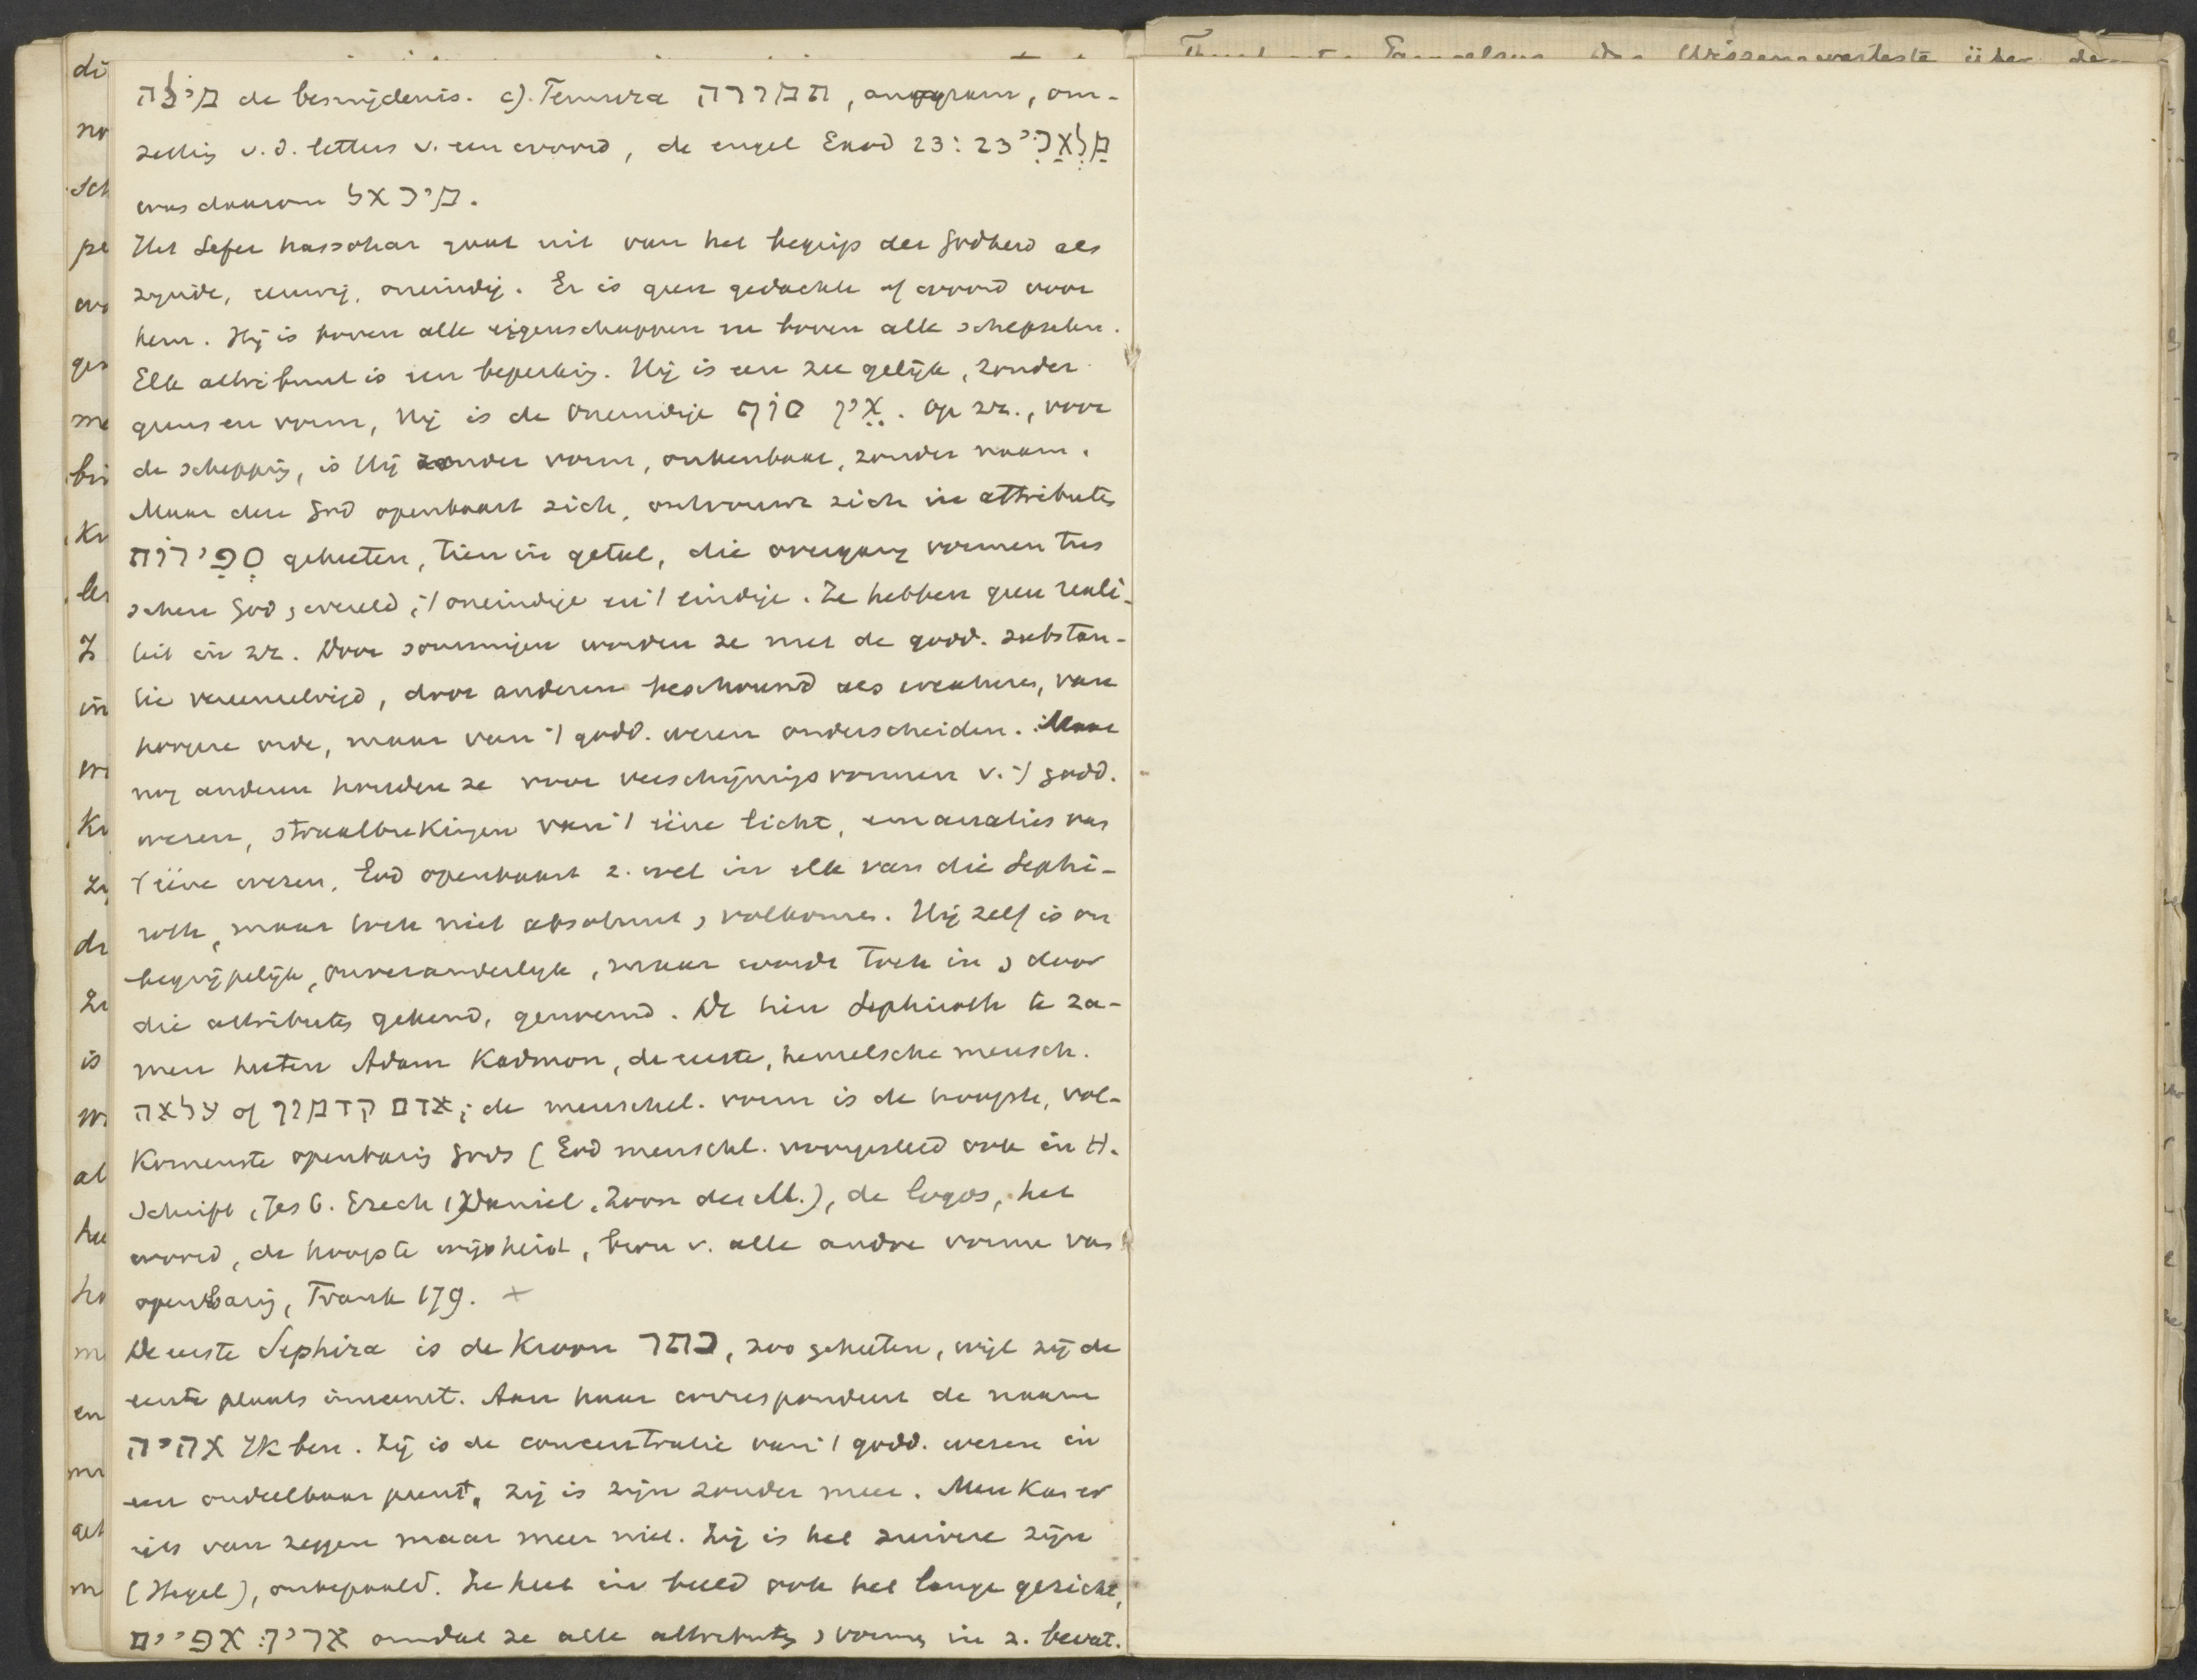 מִילָה de besnijdenis. c). Temura תמורה, anagram, om-
zettig v.d. letters v. een woord, de engel Exod 23:23 מַלְאָכִי
was daarom מיכאל.
Het Sefer hassohar gaat uit van het begrip der Godheid als
zijnde, eeuwig, oneindig. Er is geen gedachte of woord voor
hem. Hij is boven alle eigenschappen en boven alle schepselen.
Elk attribuut is een beperkig. Hij is een zee gelijk, zonder
grens en vorm, Hij is de Oneindige אֵין סוֹף. Op zz., voor
de scheppig, is Hij zonder vorm, onkenbaar, zonder naam.
Maar deze God openbaart zich, ontvouwt zich in attributes
סְפִירוֹת geheeten, tien in getal, die overgang vormen tus
schen God, wereld, 't oneindige en 't eindige. Ze hebben geen reali-
teit in zz. Door sommigen worden ze met de godd. substan-
tie vereenzelvigd, door anderen beschouwd als creatures, van
hoogere orde, maar van 't godd. wezen onderscheiden. Maar
nog anderen houden ze voor verschijnigsvormen v. 't godd.
wezen, straalbrekingen van 't ééne licht, emanaties van
't ééne wezen. God openbaart z. wel in elk van die Sephi-
roth, maar toch niet absoluut, volkomen. Hij zelf is on
begrijpelijk, onveranderlijk, maar wordt toch in, door
die attributes gekend, genoemd. De tien Sephiroth te za-
men heeten Adam Kadmon, de eerste, hemelsche mensch.
אדם קדמון of עלאה; de menschel. vorm is de hoogste, vol-
komenste openbarig Gods (God menschl. voorgesteld ook in H.
Schrift, Jes 6. Ezech 1, Daniel, Zoon des M.), de logos, het
woord, de hoogste wijsheid, bron v. alle andre vorme van
openbarig, Frank 179. +
De eerste Sephira is de Kroon כתר, zoo geheeten, wijl zij de
eerste plaats inneemt. Aan haar correspondeert de naam
אהיה Ik ben. Zij is de concentratie van 't godd. wezen in
een ondeelbaar punt, zij is zijn zonder meer. Men kan er
iets van zeggen maar meer niet. Zij is het zuivere zijn
(Hegel), onbepaald. Ze heet in beeld ook het lange gezicht,
אריך אפיים omdat ze alle attributes, vormes in z. bevat.